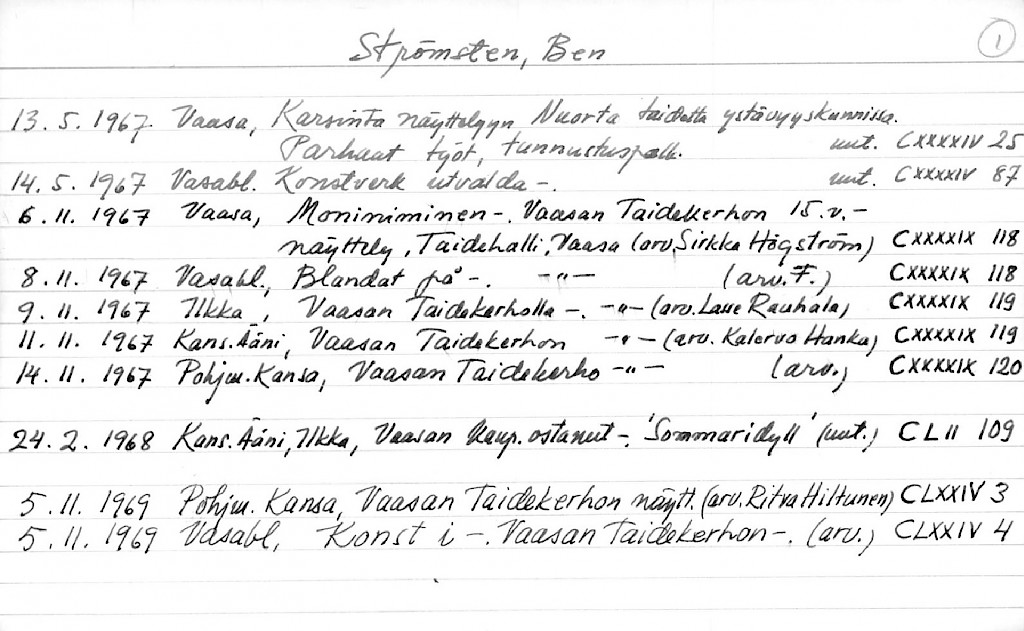 Strömsten, Ben
1
13.5.1967. Vaasa, Karsinta näyttelyyn Nuorta taidetta ystävyyskunnissa.
Parhaat työt, tunnustuspalk. uut. CXXXXIV 25
14.5.1967 Vasabl. Konstverk utvalda -. uut. CXXXXIV 87
6.11.1967 Vaasa, Moniniminen -. Vaasan Taidekerhon 15.v.-
näyttely, Taidehalli, Vaasa (arv. Sirkka Högström) CXXXXIX 118
8.11.1967 Vasabl., Blandat på -. -"- (arv. F.) CXXXXIX 118
9.11.1967 Ilkka, Vaasan Taidekerholla -. -"- (arv. Lasse Rauhala) CXXXXIX 119
11.11.1967 Kans.Ääni, Vaasan Taidekerhon -"- (arv. Kalervo Hanka) CXXXXIX 119
14.11.1967 Pohjm.Kansa, Vaasan Taidekerho -"- (arv.) CXXXXIX 120
24.2.1968 Kans.Ääni, Ilkka, Vaasan kaup. ostanut -. 'Sommaridyll' (uut.) CLII 109
5.11.1969 Pohjm. Kansa, Vaasan Taidekerhon näytt. (arv. Ritva Hiltunen) CLXXIV 3
5.11.1969 Vasabl, Konst i -. Vaasan Taidekerhon -. (arv.) CLXXIV 4